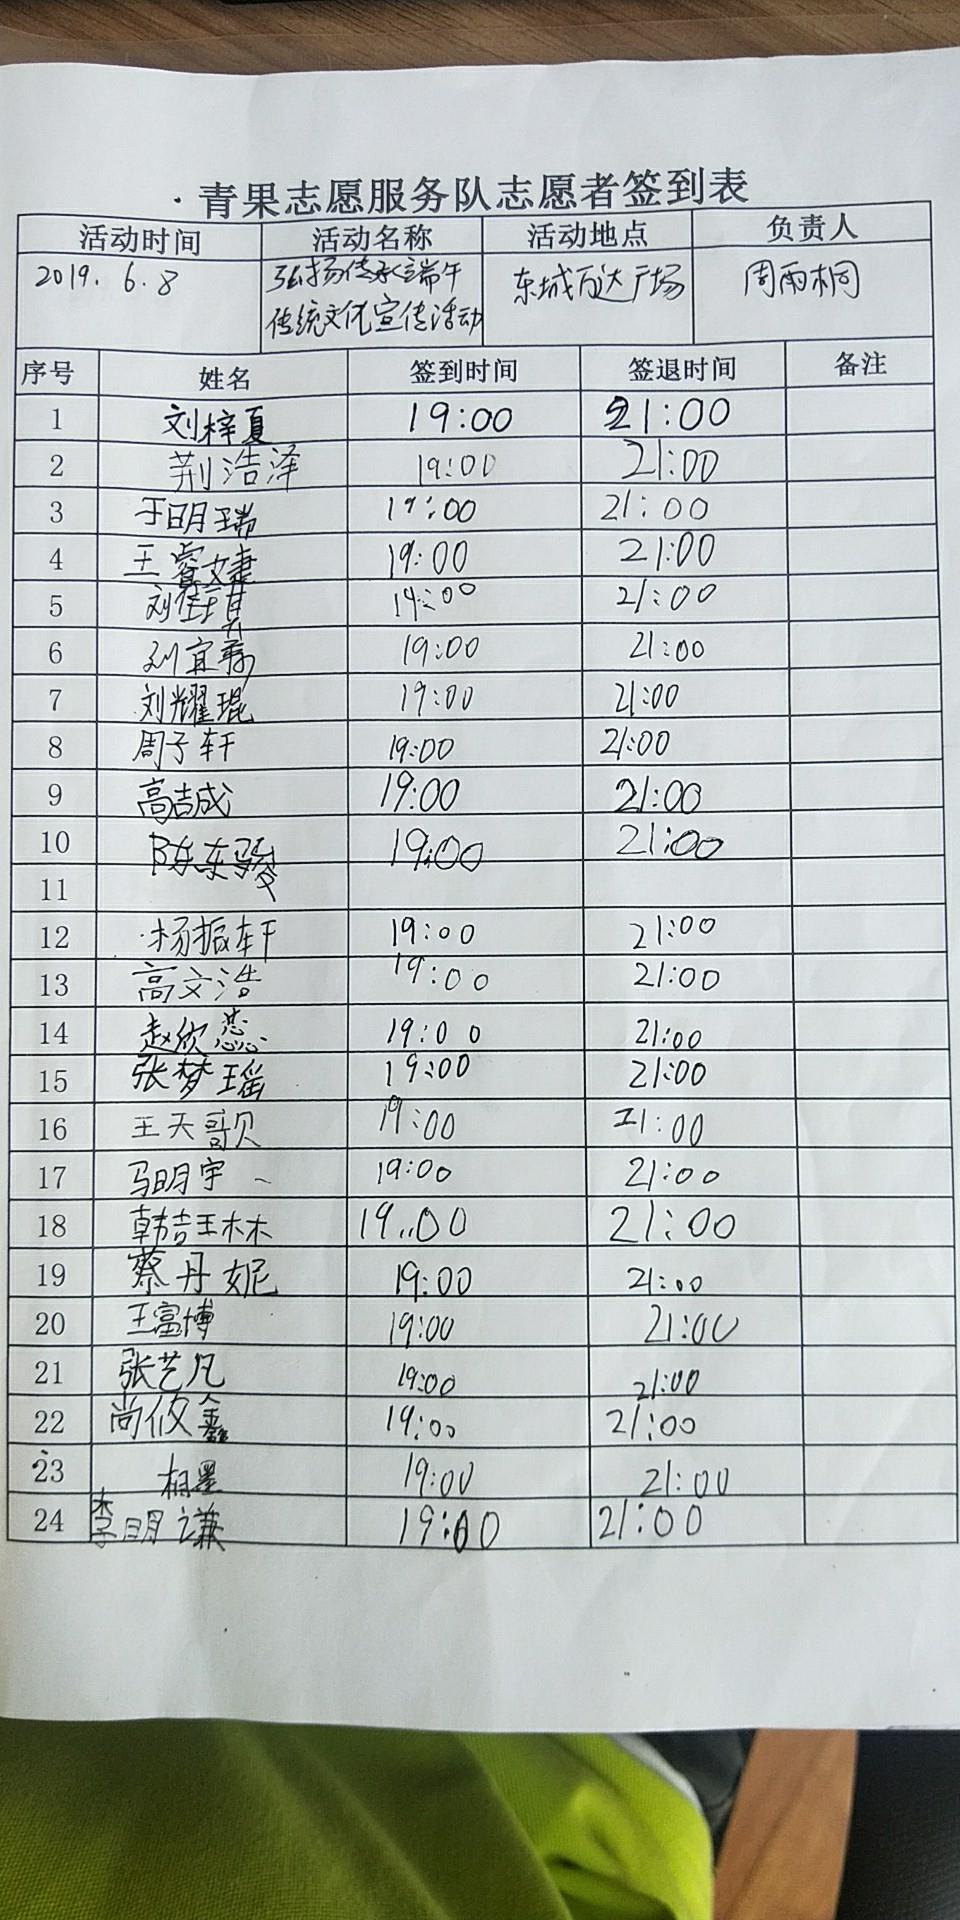 青果志愿服务队志愿者签到表
活动时间 活动名称 活动地点 负责人
2019.6.8 弘扬传承端午传统文化宣传活动 东城万达广场 周雨桐
序号 姓名 签到时间 签退时间 备注
1 刘梓夏 19:00 21:00
2 荆浩泽 19:00 21:00
3 于明瑞 19:00 21:00
4 王睿婕 19:00 21:00
5 刘佳琪 19:00 21:00
6 刘宜 19:00 21:00
7 刘耀琨 19:00 21:00
8 周子轩 19:00 21:00
9 高吉成 19:00 21:00
10 陈东骏 19:00 21:00
11
12 杨振轩 19:00 21:00
13 高文浩 19:00 21:00
14 赵欣蕊 19:00 21:00
15 张梦瑶 19:00 21:00
16 王天歌 19:00 21:00
17 马明宇 19:00 21:00
18 韩吉琳 19..00 21:00
19 蔡丹妮 19:00 21:00
20 王富博 19:00 21:00
21 张艺凡 19:00 21:00
22 尚攸鑫 19:00 21:00
23 相墨 19:00 21:00
24 李明谦 19:00 21:00